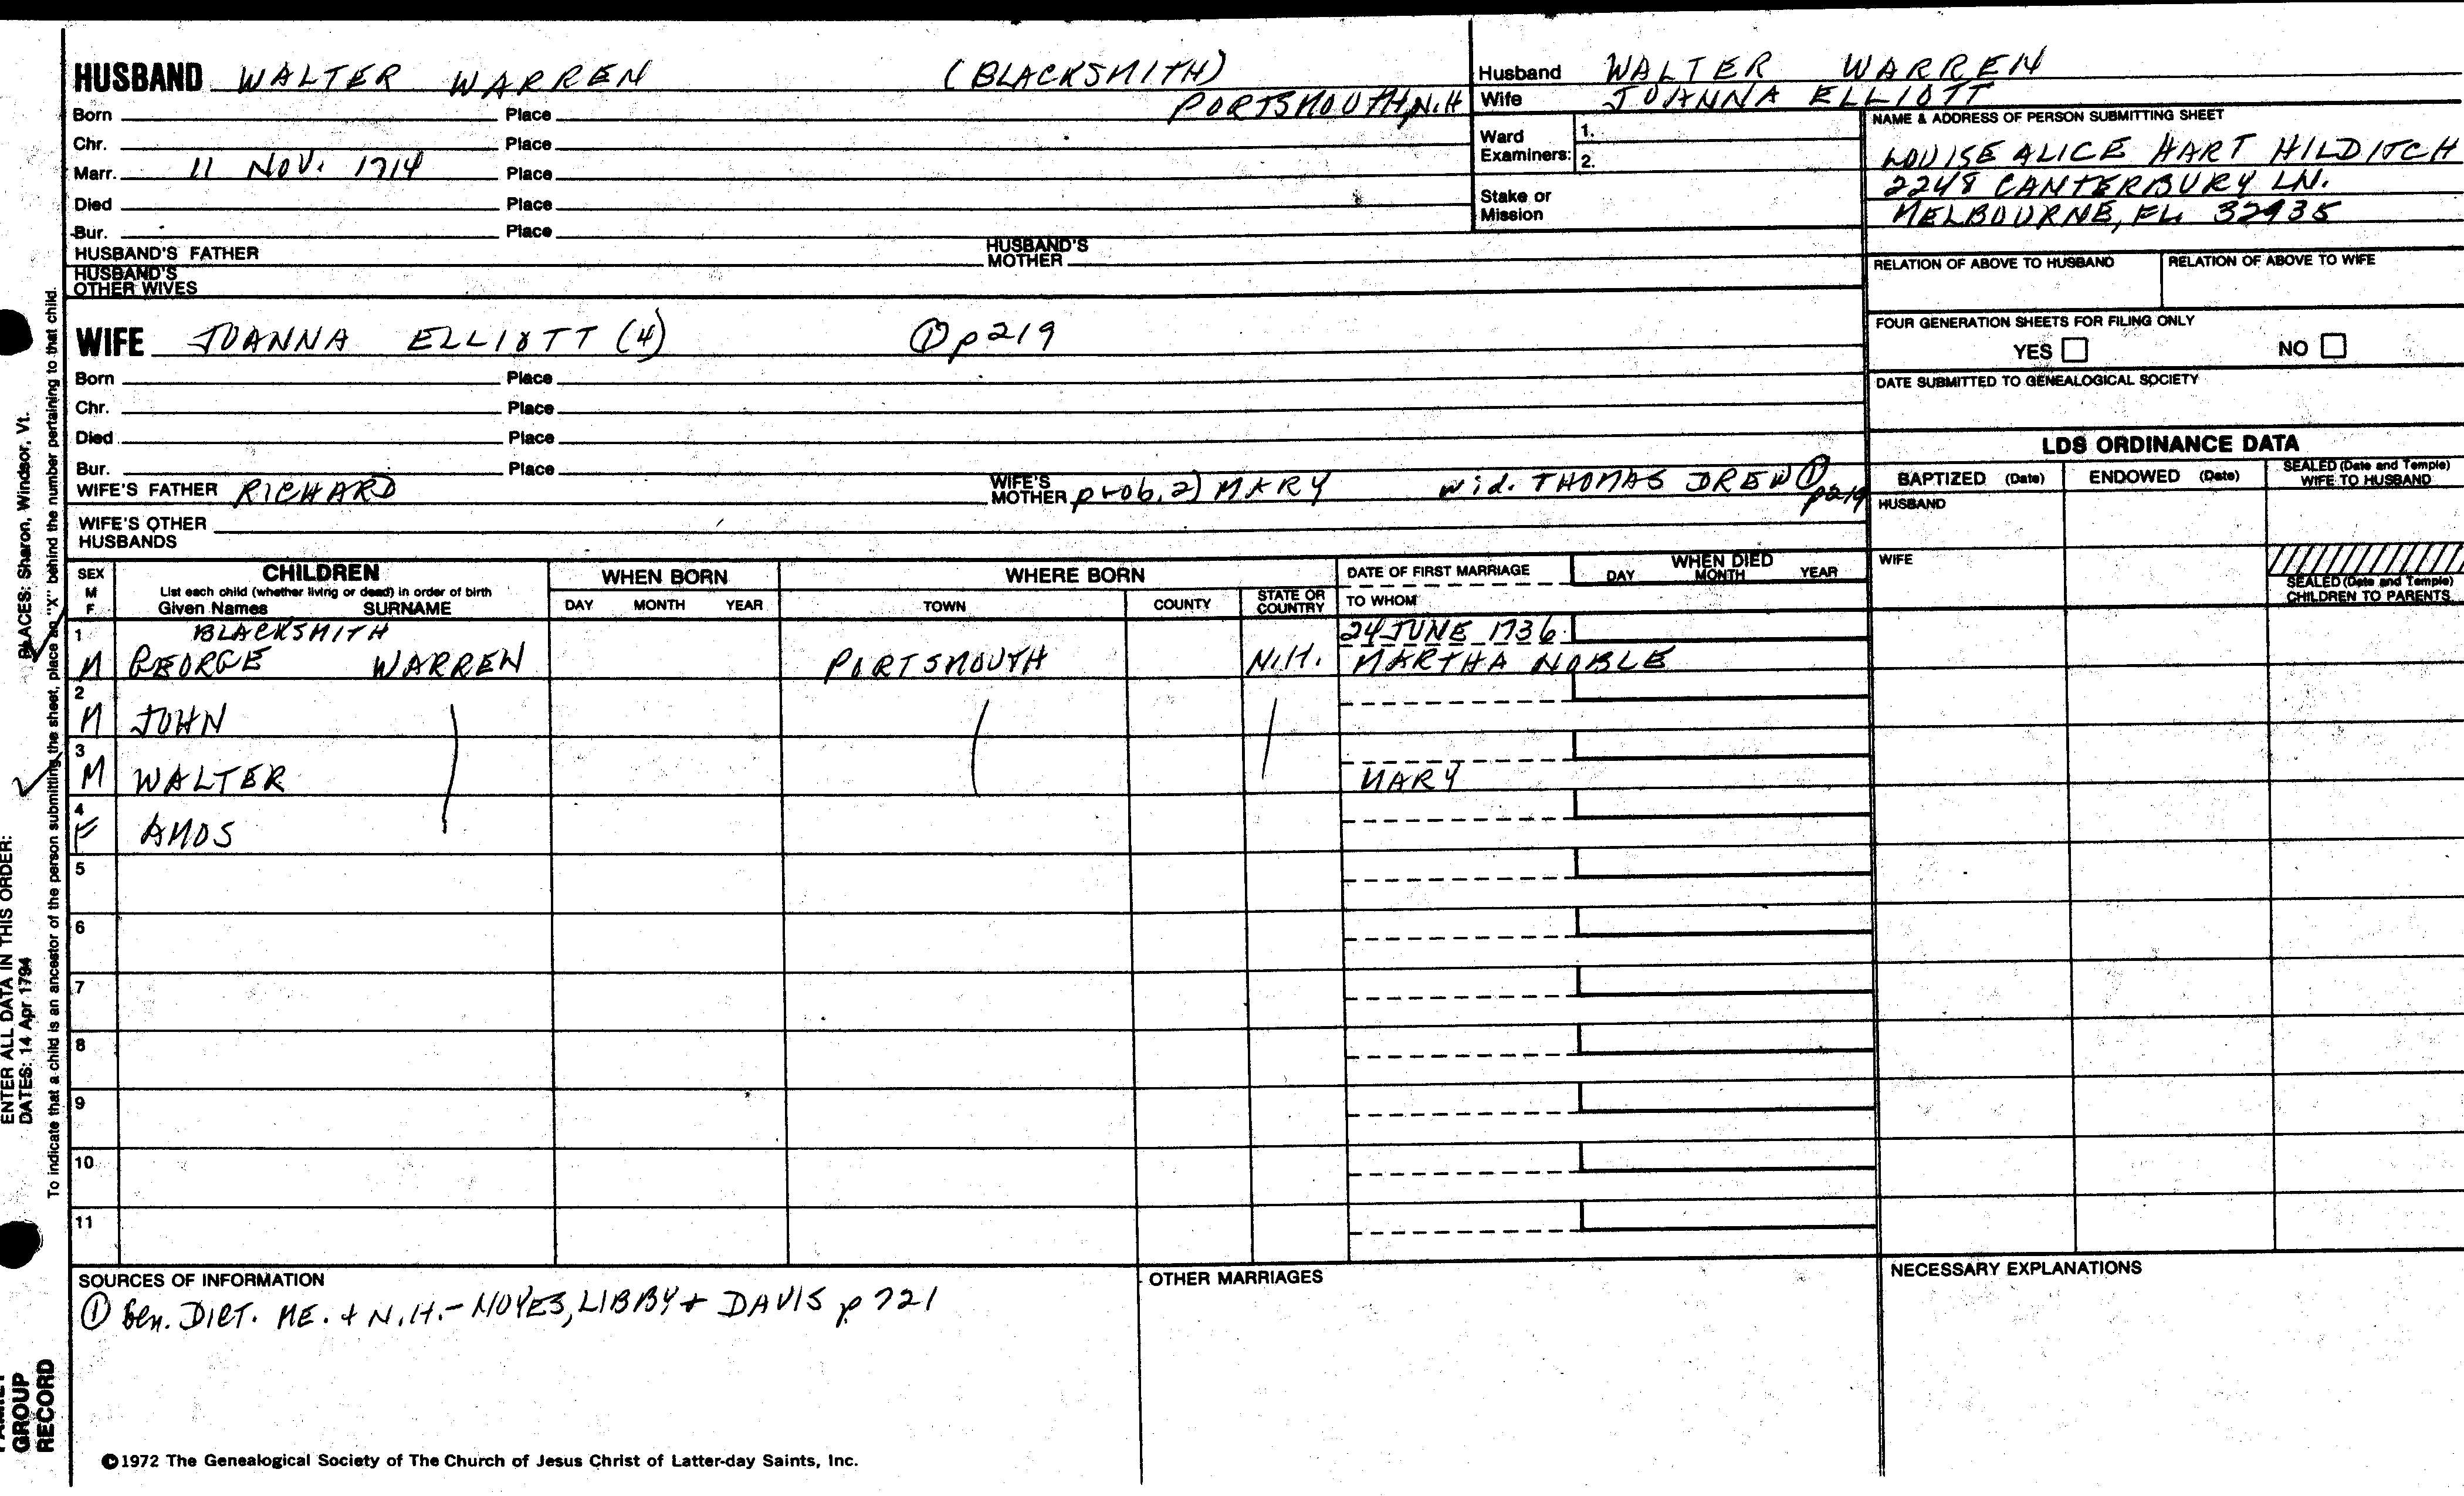 HUSBAND WALTER WARREN (BLACKSMITH)
PORTSMOUTH, N.H
Born Place
Chr. Place
Marr. 11 NOV. 1714 Place
Died Place
Bur. Place
HUSBAND'S FATHER HUSBAND'S MOTHER
HUSBAND'S OTHER WIVES
Husband WALTER WARREN
Wife JOANNA ELLIOTT
Ward Examiners: 1.
2.
Stake or Mission
NAME & ADDRESS OF PERSON SUBMITTING SHEET
LOUISE ALICE HART HILDITCH
2248 CANTERBURY LN.
MELBOURNE, FL 32935
RELATION OF ABOVE TO HUSBAND RELATION OF ABOVE TO WIFE
FOUR GENERATION SHEETS FOR FILING ONLY
YES NO
DATE SUBMITTED TO GENEALOGICAL SOCIETY
WIFE JOANNA ELLIOTT (4) ① p219
Born Place
Chr. Place
Died Place
Bur. Place
WIFE'S FATHER RICHARD WIFE'S MOTHER prob. 2) MARY wid. THOMAS DREW ① p219
WIFE'S OTHER HUSBANDS
LDS ORDINANCE DATA
BAPTIZED (Date) ENDOWED (Date) SEALED (Date and Temple) WIFE TO HUSBAND
HUSBAND
WIFE
SEALED (Date and Temple) CHILDREN TO PARENTS
SEX M F CHILDREN WHEN BORN WHERE BORN DATE OF FIRST MARRIAGE WHEN DIED
List each child (whether living or dead) in order of birth DAY MONTH YEAR
Given Names SURNAME DAY MONTH YEAR TOWN COUNTY STATE OR COUNTRY TO WHOM
1 BLACKSMITH 24 JUNE 1736
M GEORGE WARREN PORTSMOUTH N.H. MARTHA NOBLE
2
M JOHN
3
M WALTER MARY
4
F AMOS
5
6
7
8
9
10
11
SOURCES OF INFORMATION
① Gen. DICT. ME. + N.H. - NOYES, LIBBY + DAVIS p 721
OTHER MARRIAGES
NECESSARY EXPLANATIONS
©1972 The Genealogical Society of The Church of Jesus Christ of Latter-day Saints, Inc.
GROUP
RECORD
ENTER ALL DATA IN THIS ORDER:
DATES: 14 Apr 1794 PLACES: Sharon, Windsor, Vt.
To indicate that a child is an ancestor of the person submitting the sheet, place an "X" behind the number pertaining to that child.